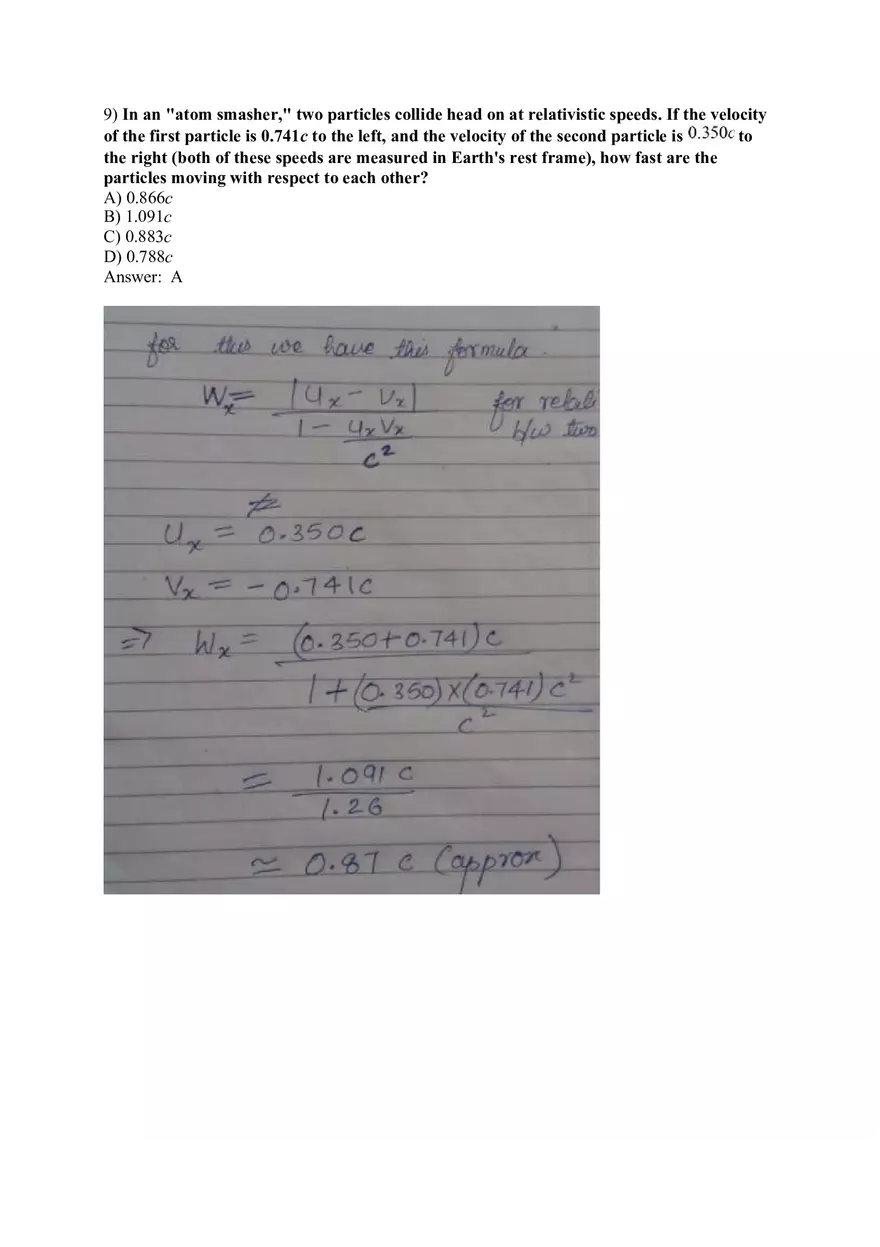 9) In an "atom smasher," two particles collide head on at relativistic speeds. If the velocity
of the first particle is 0.741c to the left, and the velocity of the second particle is 0.350c to
the right (both of these speeds are measured in Earth's rest frame), how fast are the
particles moving with respect to each other?
A) 0.866c
B) 1.091c
C) 0.883c
D) 0.788c
Answer: A
for this we have this formula.
Wx = |Ux - Vx|
for relati
1 - UxVx
b/w two
c²
Ux = 0.350c
Vx = -0.741c
=> Wx = (0.350+0.741)c
1+(0.350)x(0.741)c²
c²
= 1.091 c
1.26
≃ 0.87 c (approx)